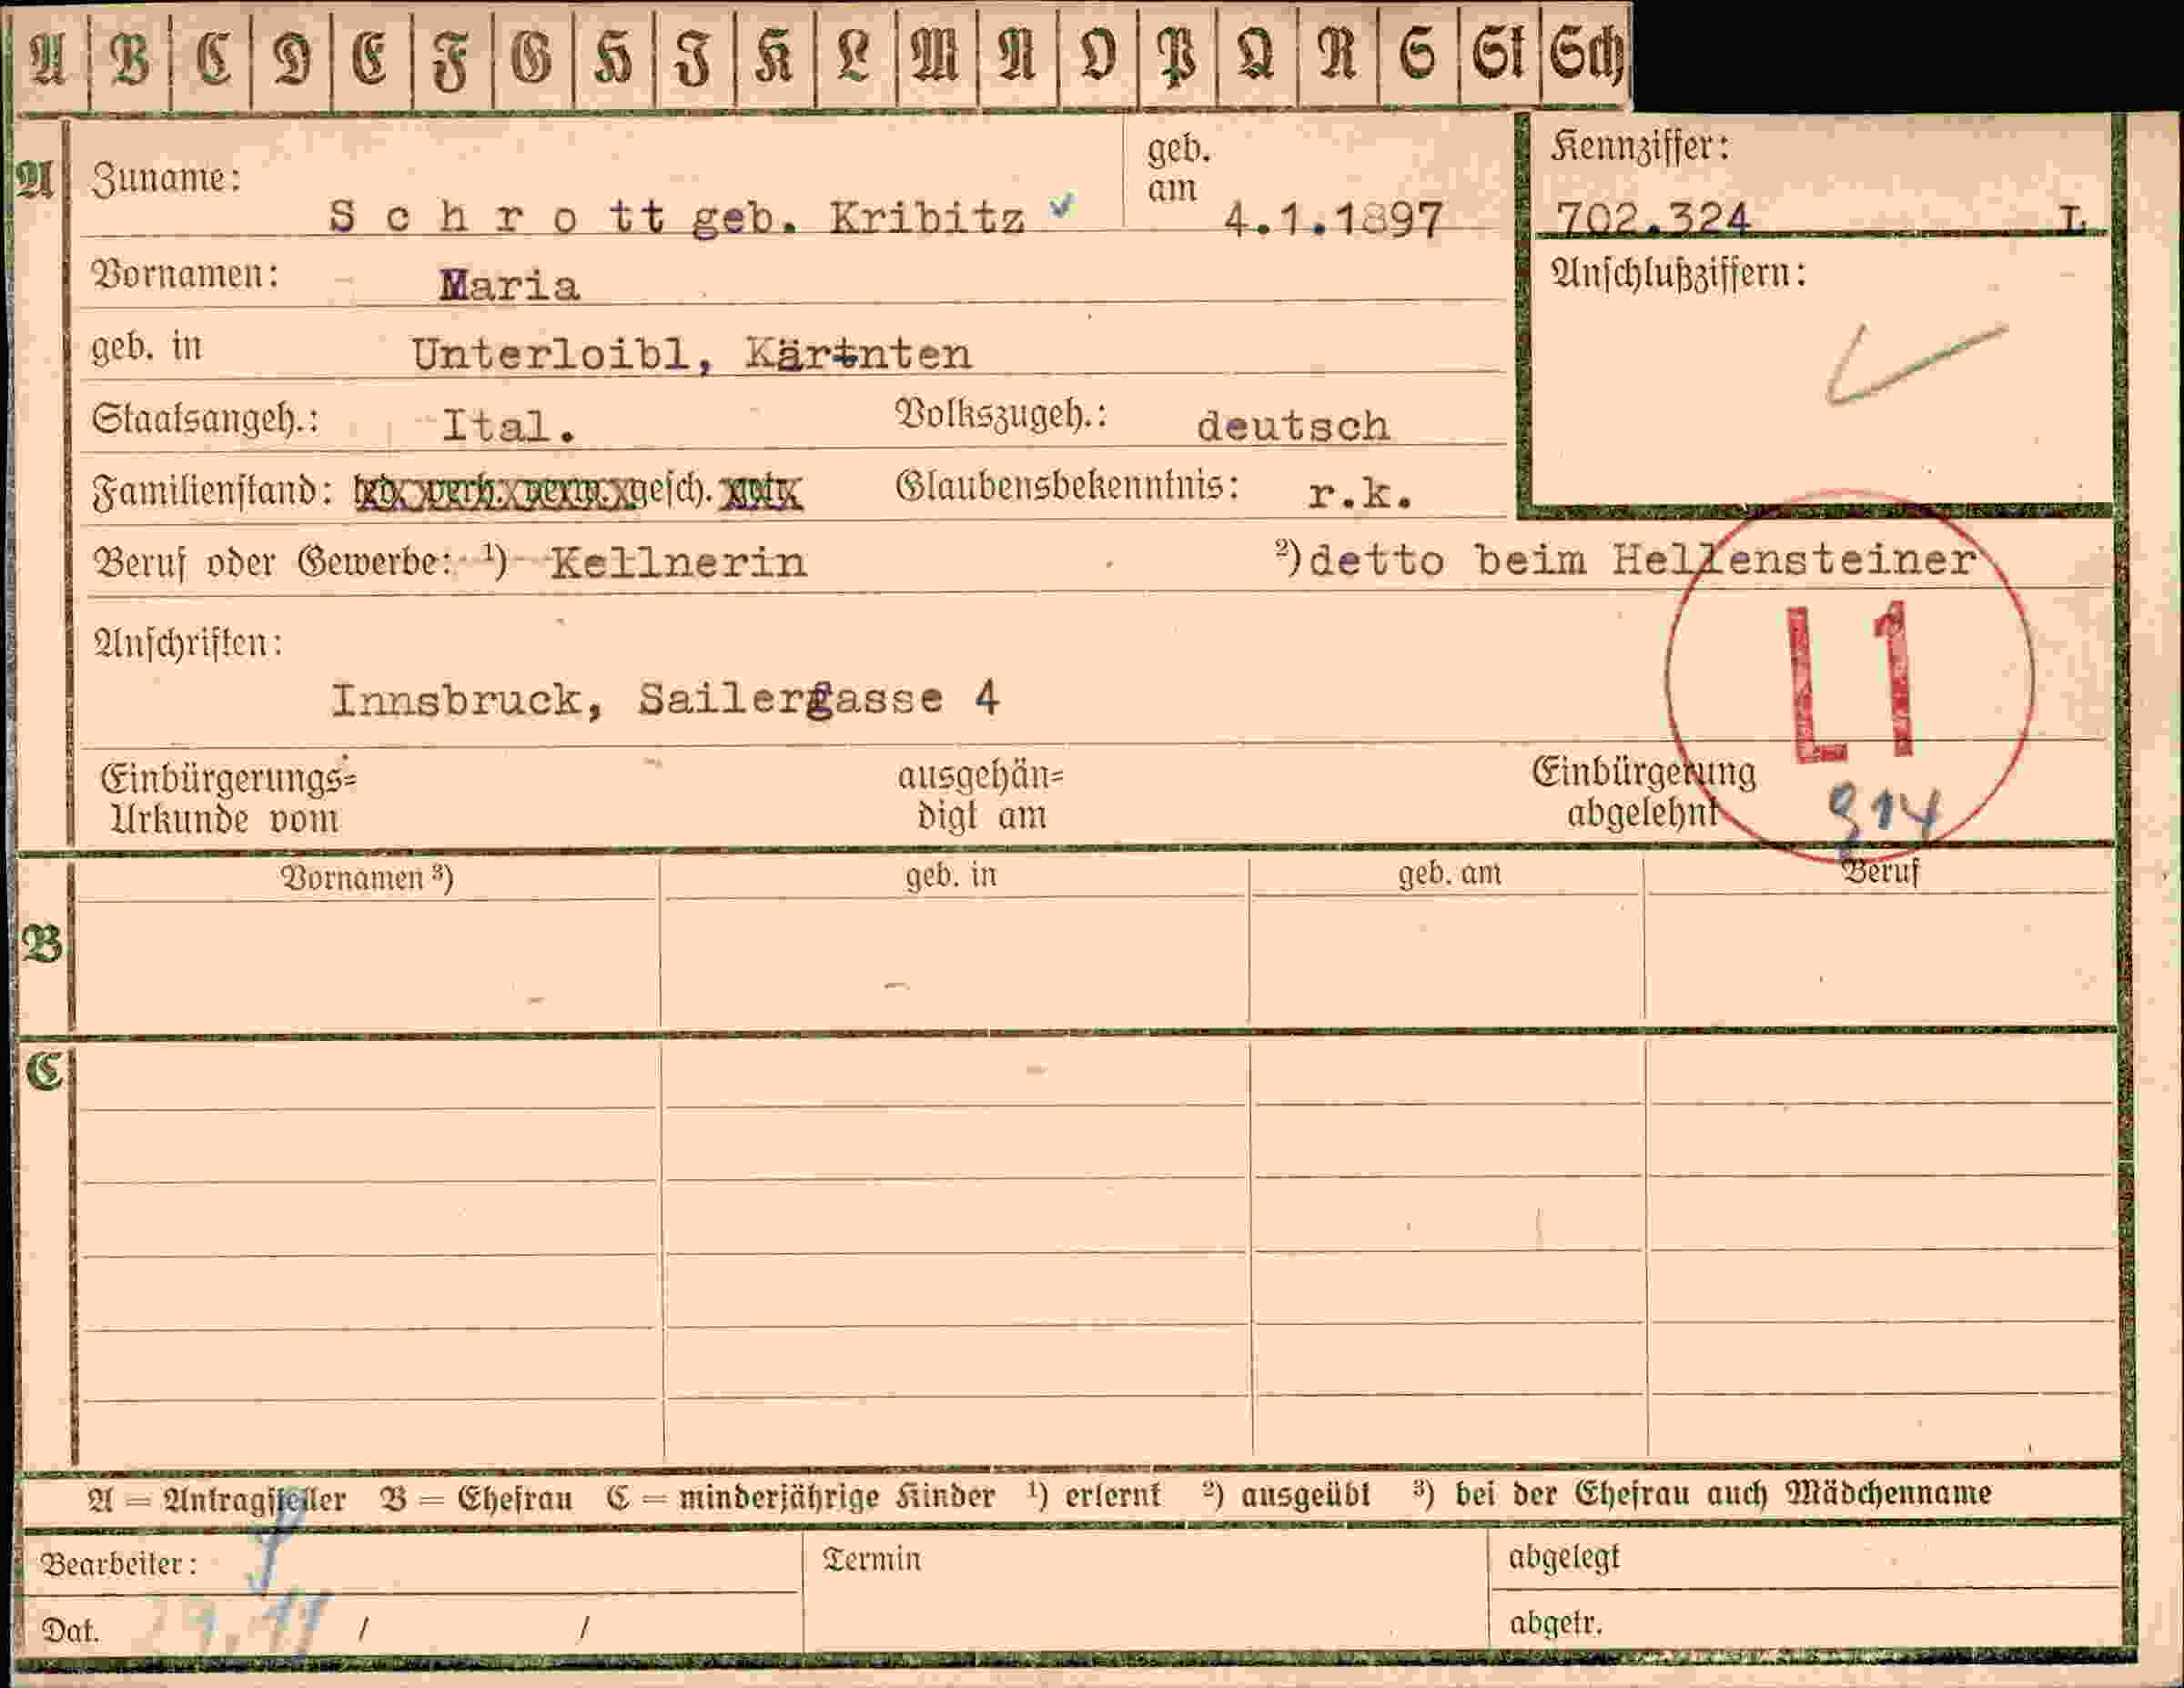 A B C D E F G H I K L M N O P Q R S St Sch
A
Zuname: S c h r o tt geb. Kribitz
geb. am 4.1.1897
Kennziffer:
702.324 I.
Vornamen: Maria
Anschlußziffern:
geb. in Unterloibl, Kärtnten
Staatsangeh.: Ital. Volkszugeh.: deutsch
Familienstand: gesch. Glaubensbekenntnis: r.k.
Beruf oder Gewerbe: ¹) Kellnerin ²) detto beim Hellensteiner
Anschriften:
Innsbruck, Sailergasse 4
L1
Einbürgerungs=
Urkunde vom
ausgehän=
digt am
Einbürgerung
abgelehnt
914
B
Vornamen ³) geb. in geb. am Beruf
C
A = Antragsteller B = Ehefrau C = minderjährige Kinder ¹) erlernt ²) ausgeübt ³) bei der Ehefrau auch Mädchenname
Bearbeiter: Termin abgelegt
Dat. / / abgetr.